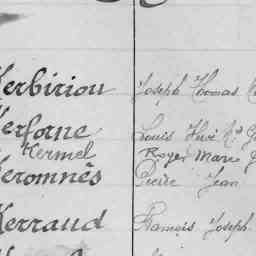 Kerbiriou Joseph Thomas
Kerforne Louis Hué
Kermel Royer Marie
Keromnès Pierre Jean
Kerraud François Joseph